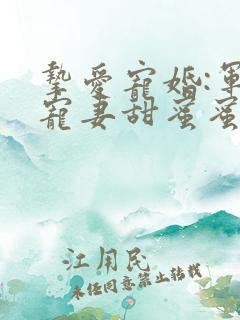 摯愛寵婚:軍
寵妻甜蜜蜜
江用民
未经同意禁止转载